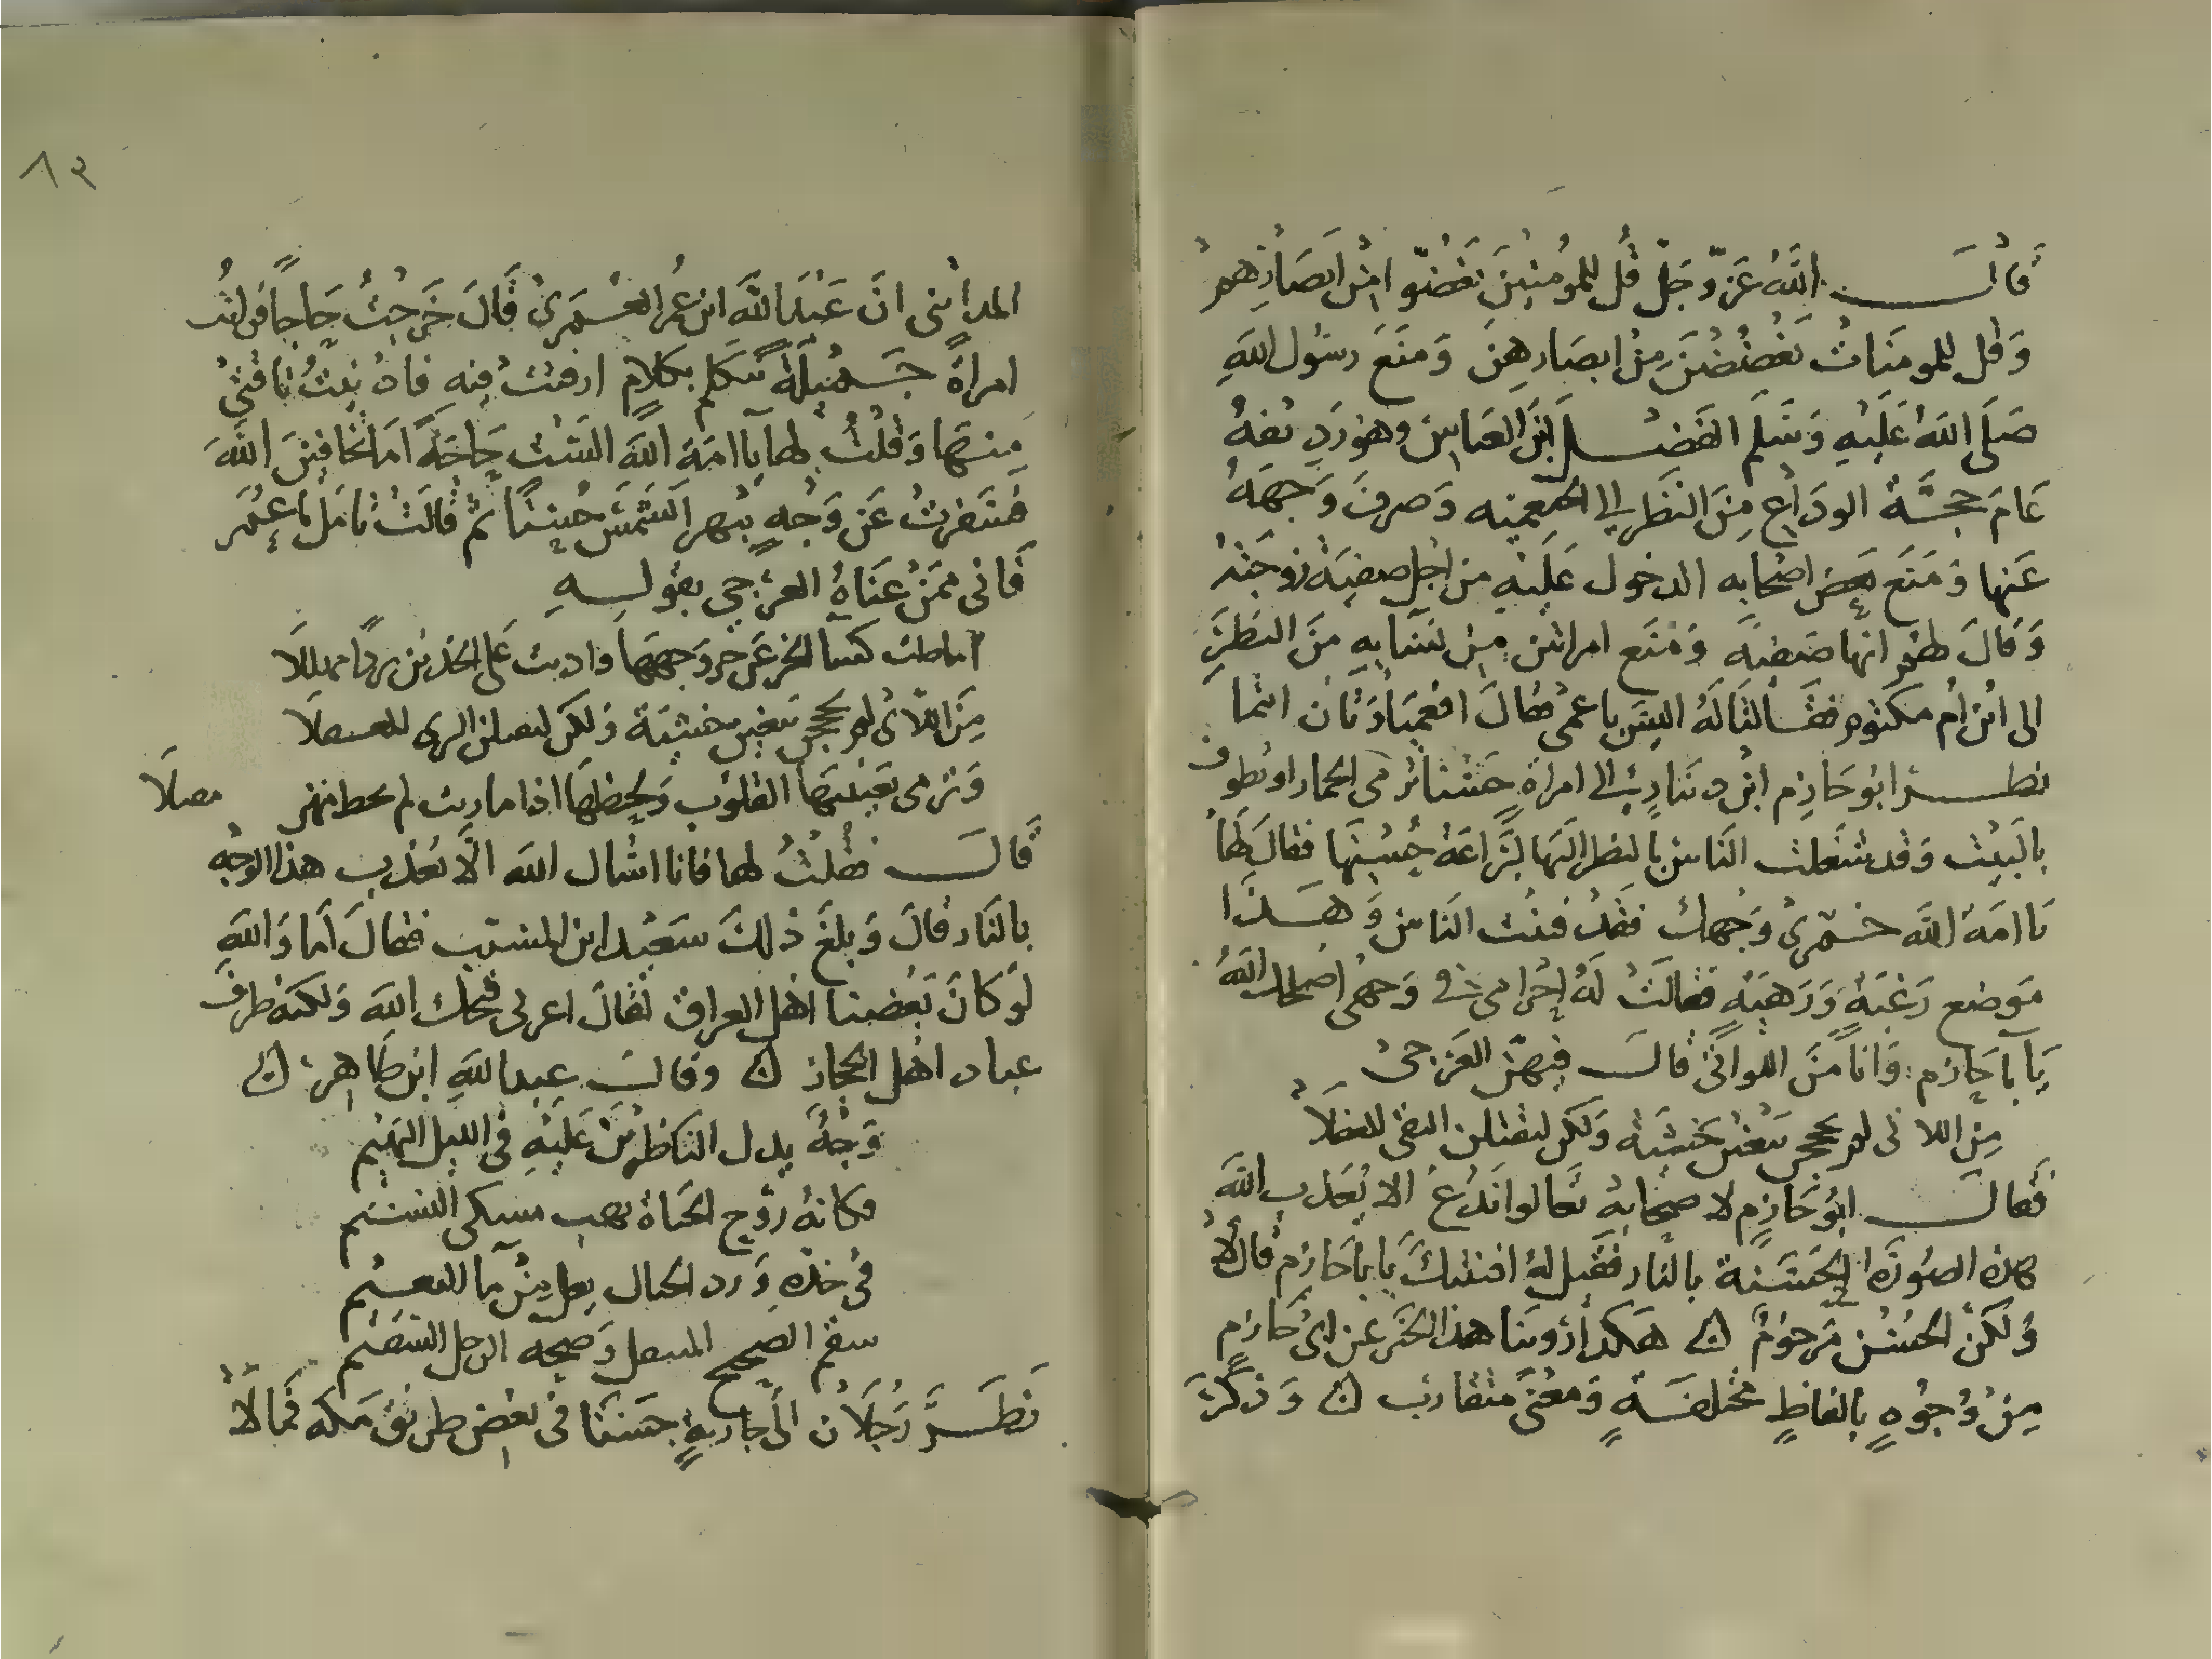 قال الله عز وجل قل للمومنين يغضوا من ابصارهم
وقل للمومنات يغضضن من ابصارهن ومنع رسول الله
صلى الله عليه وسلم الفضل ابن العباس وهو رديفه
عام حجة الوداع من النظر الى الخثعمية وصرف وجهه
عنها ومنع بعض اصحابه الدخول عليه من اجل صفية زوجته
وقال لهم انها صفية ومنع امراتين من نسايه من النظر
الى ابن ام مكتوم فقالتا له اليس باعمى فقال افعمياوتان انتما
نظر ابو حازم ابن دينار الى امراة حسنا ترمي الجمار او تطوف
بالبيت وقد شغلت الناس بالنظر اليها لبراعة حسنها فقال لها
يا امة الله خمري وجهك فقد فتنت الناس وهذا
موضع رغبة ورهبة فقالت له احرامي في وجهي اصلحك الله
يا با حازم وانا من اللواتي قال فيهن العرجي
من اللاتي لم يحججن يبغين خشية ولكن ليقتلن التقي المغفلا
فقال ابو حازم لاصحابه تعالوا ندع الا يعذب الله
هذه الصورة الحسنة بالنار فقيل له افتنتك يا با حازم قال لا
ولكن الحسن مرحوم ۞ هكذا روينا هذا الخبر عن ابي حازم
من وجوه بالفاظ مختلفة ومعنى متقارب ۞ وذكر
٨٢
المدائني ان عبد الله ابن عمر العمري قال خرجت حاجا فرايت
امراة جميلة تتكلم بكلام ارفثت فيه فادنيت ناقتي
منها وقلت لها يا امة الله الست حاجة اما تخافين الله
فسفرت عن وجه يبهر الشمس حسنا ثم قالت تامل يا عمر
فاني ممن عناه العرجي بقوله
اماطت كسا الخز عن حر وجهها وادنت على الخدين بردا مهللا
من اللاتي لم يحججن يبغين خشية ولكن ليقتلن البري المغفلا
وترمي بعينيها القلوب ولحظها اذا ما رمت لم تخط منهن مقتلا
قال فقلت لها فانا اسال الله الا يعذب هذا الوجه
بالنار قال وبلغ ذلك سعيد ابن المسيب فقال اما والله
لو كان بعض اهل العراق لقال اعزبي قبحك الله ولكنه ظرف
عباد اهل الحجاز ۞ وقال عبد الله ابن طاهر ۞
وجه يدل الناظرين عليه في الليل البهيم
فكانه روح الحياة يهب مسكي النسيم
في خده ورد الجمال يعل من ما النعيم
سقم الصحيح وصحة الرجل السقيم
نظر رجلان الى جارية حسنا في بعض طريق مكة فمالا